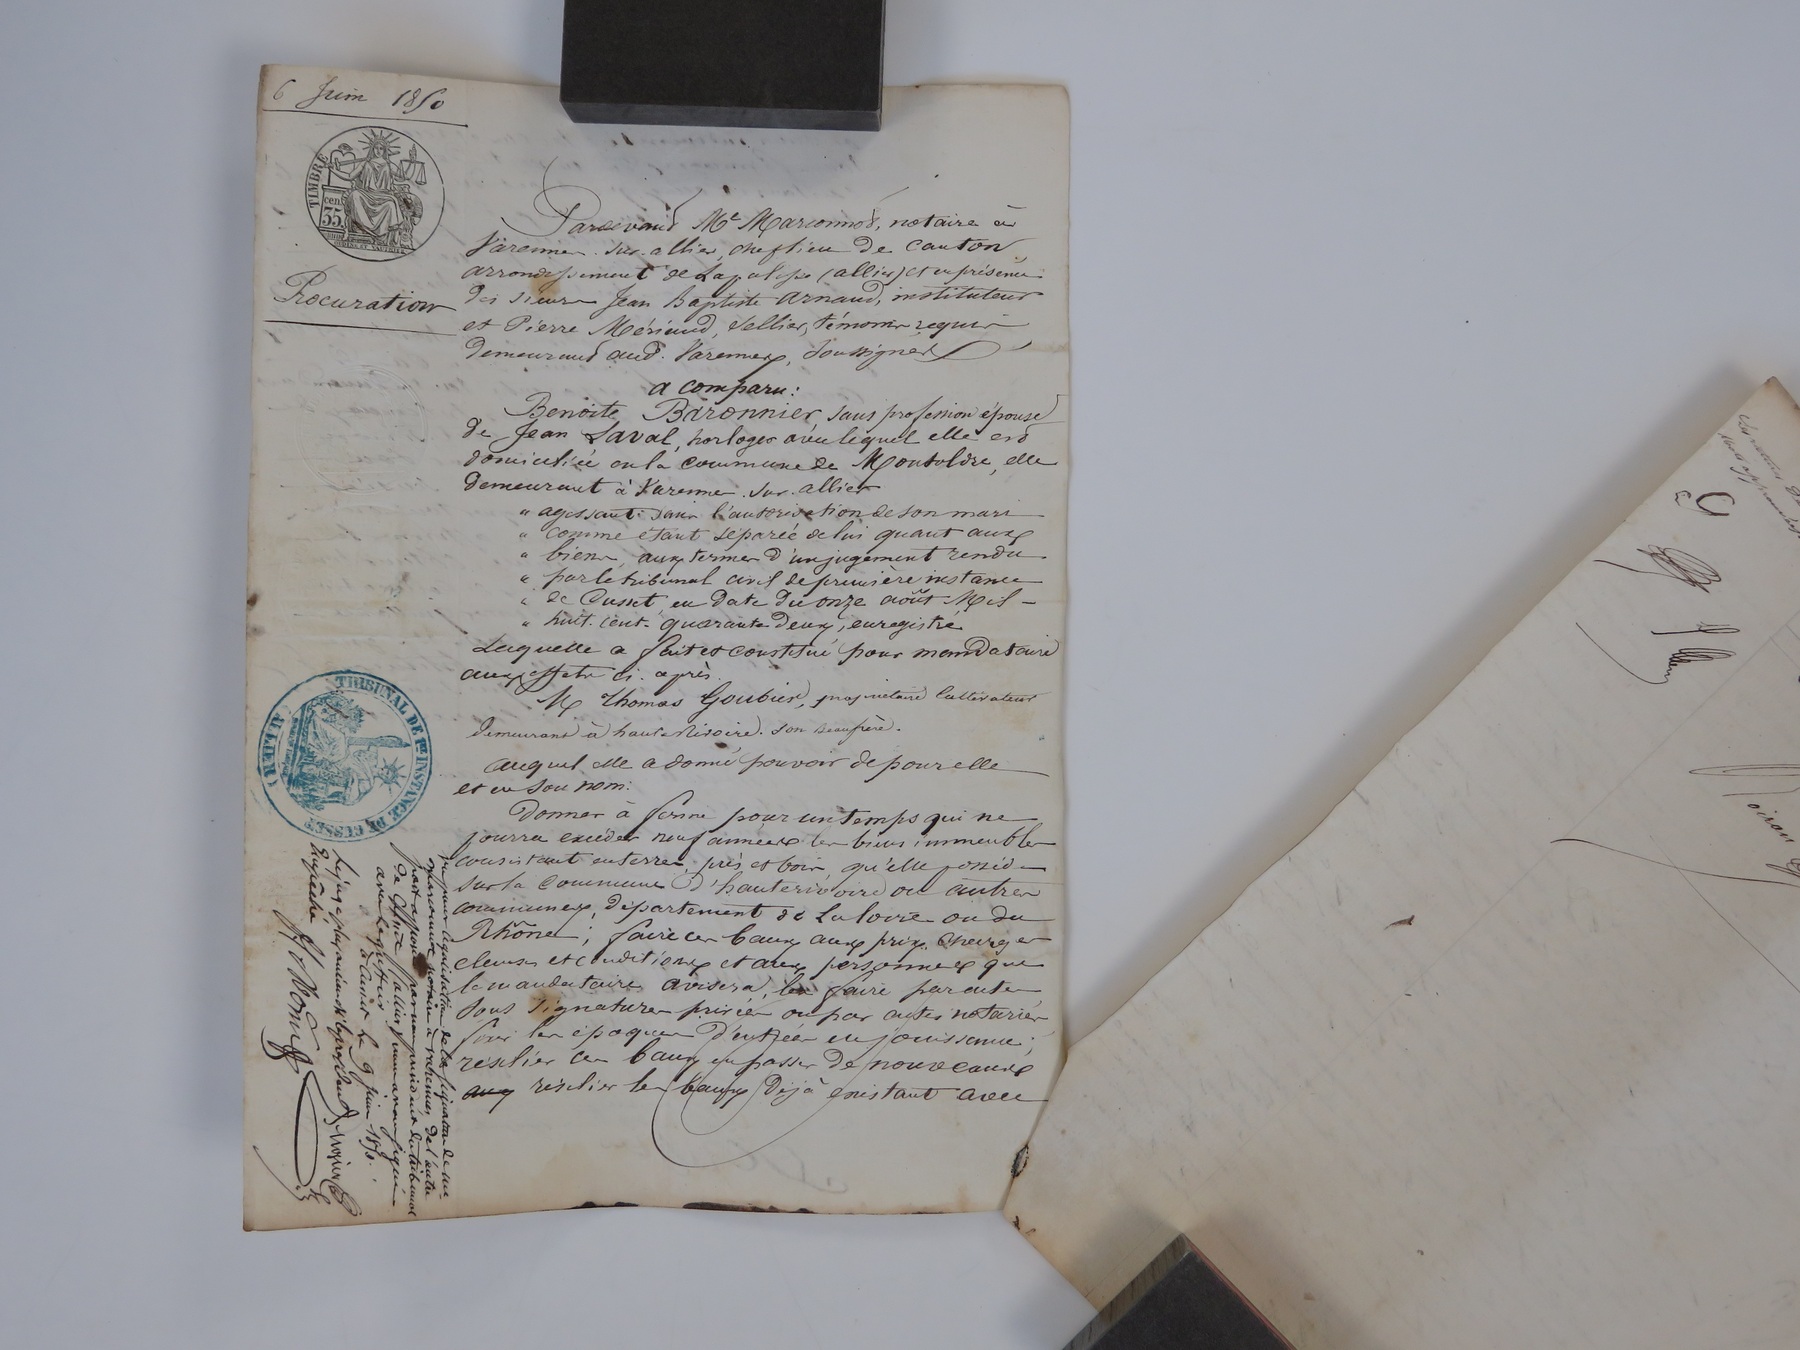 6 Juin 1850
TIMBRE
cen
35
Procuration
Pardevant Me Marconnot, notaire à
Varennes-sur-allier, chef lieu de canton
arrondissement de Lapalisse (allier) et en présence
des sieurs Jean Baptiste Arnaud, instituteur
et Pierre Mériaud, sellier, témoins requis
demeurant aud. Varennes, soussignés
a comparu:
Benoite Baronnier, sans profession épouse
de Jean Laval, horloger avec lequel elle est
domiciliée en la commune de Montoldre, elle
demeurant à Varennes-sur-allier
" agissant sans l'autorisation de son mari
" comme étant séparée de lui quant aux
" biens, aux termes d'un jugement rendu
" par le tribunal civil de première instance
" de Cusset, en date du onze août Mil-
" huit-cent-quarante deux, enregistré
Laquelle a fait et constitué pour mandataire
aux effets ci-après
M Thomas Goubier, propriétaire Cultivateur
demeurant à hauteRivoire. son beaufrère.
auquel elle a donné pouvoir de pour elle
et en son nom:
Donner à ferme pour un temps qui ne
pourra excéder neuf années les biens immeubles
consistant en terres, prés et bois, qu'elle possède
sur la commune d'hauterivoire ou autres
communes, département de La loire ou du
Rhône; faire ces baux aux prix, charges
clauses et conditions et avec personnes que
le mandataire avisera, les faire par actes
sous signatures privées ou par actes notariés
fixer les époques d'entrée en jouissance;
résilier ces baux en passer de nouveaux
aux résilier les baux déjà existant avec
TRIBUNAL DE 1re INSTANCE DE CUSSET
(ALLIER)
Vu pour légalisation de la signature de me
Marconnot notaire à Varennes, de l'autre
part apposée par nous président du tribunal
de Cusset (allier)
à Cusset le 9 Juin 1850.